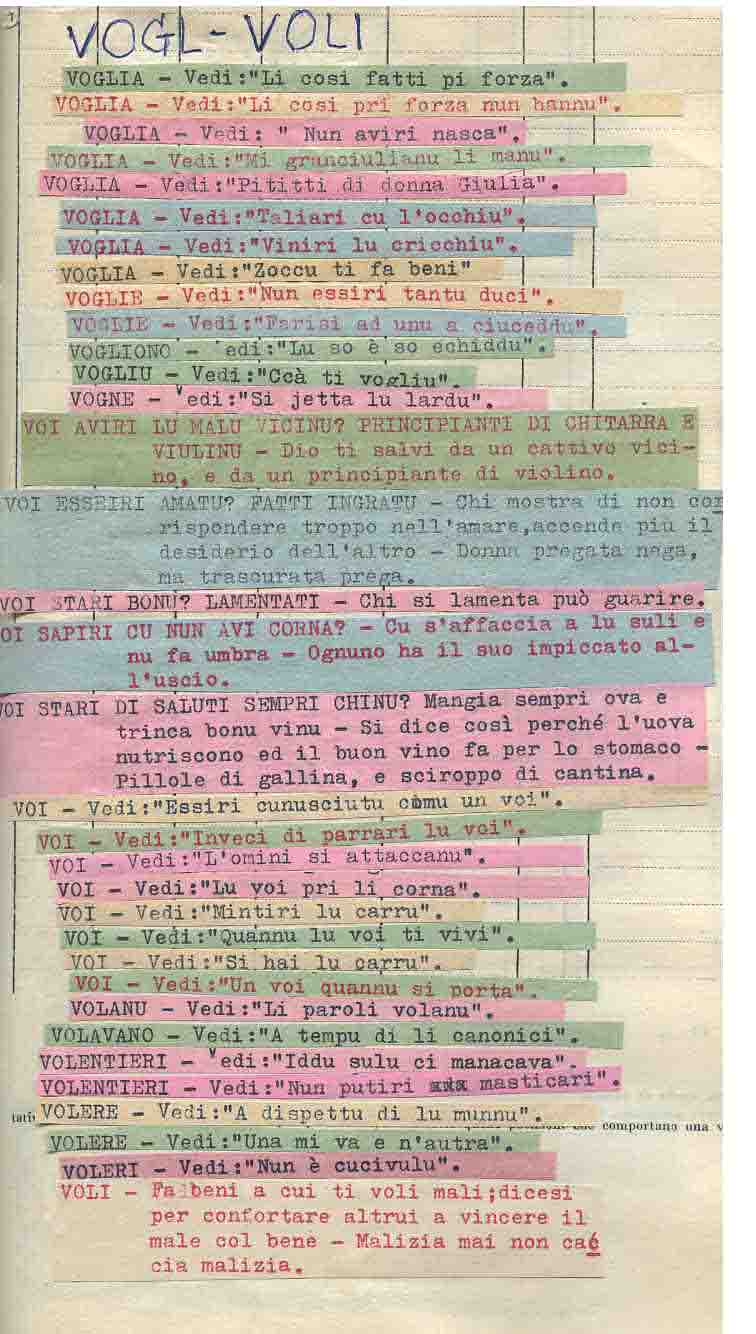 VOGL - VOLI
VOGLIA - Vedi:"Li cosi fatti pi forza".
VOGLIA - Vedi:"Li cosi pri forza nun hannu".
VOGLIA - Vedi: " Nun aviri nasca".
VOGLIA - Vedi:"Mi granciulianu li manu".
VOGLIA - Vedi:"Pititti di donna Giulia".
VOGLIA - Vedi:"Taliari cu l'occhiu".
VOGLIA - Vedi:"Viniri lu cricchiu".
VOGLIA - Vedi:"Zoccu ti fa beni"
VOGLIE - Vedi:"Nun essiri tantu duci".
VOGLIE - Vedi:"Farisi ad unu a ciuceddu".
VOGLIONO - edi:"Lu so è so echiddu".
VOGLIU - Vedi:"Ccà ti vogliu".
VOGNE - Vedi:"Si jetta lu lardu".
VOI AVIRI LU MALU VICINU? PRINCIPIANTI DI CHITARRA E
VIULINU - Dio ti salvi da un cattivo vici-
no, e da un principiante di violino.
VOI ESSEIRI AMATU? FATTI INGRATU - Chi mostra di non cor
rispondere troppo nell'amare,accende più il
desiderio dell'altro - Donna pregata nega,
ma trascurata prega.
VOI STARI BONU? LAMENTATI - Chi si lamenta può guarire.
OI SAPIRI CU NUN AVI CORNA? - Cu s'affaccia a lu suli e
nu fa umbra - Ognuno ha il suo impiccato al-
l'uscio.
VOI STARI DI SALUTI SEMPRI CHINU? Mangia sempri ova e
trinca bonu vinu - Si dice così perché l'uova
nutriscono ed il buon vino fa per lo stomaco -
Pillole di gallina, e sciroppo di cantina.
VOI - Vedi:"Essiri cunusciutu còmu un voi".
VOI - Vedi:"Inveci di parrari lu voi".
VOI - Vedi:"L'omini si attaccanu".
VOI - Vedi:"Lu voi pri li corna".
VOI - Vedi:"Mintiri lu carru".
VOI - Vedi:"Quannu lu voi ti vivi".
VOI - Vedi:"Si hai lu carru".
VOI - Vedi:"Un voi quannu si porta".
VOLANU - Vedi:"Li paroli volanu".
VOLAVANO - Vedi:"A tempu di li canonici".
VOLENTIERI - Vedi:"Iddu sulu ci manacava".
VOLENTIERI - Vedi:"Nun putiri masticari".
VOLERE - Vedi:"A dispettu di lu munnu".
comportano una v
VOLERE - Vedi:"Una mi va e n'autra".
VOLERI - Vedi:"Nun è cucivulu".
VOLI - Fa beni a cui ti voli mali;dicesi
per confortare altrui a vincere il
male col bene - Malizia mai non cac
cia malizia.